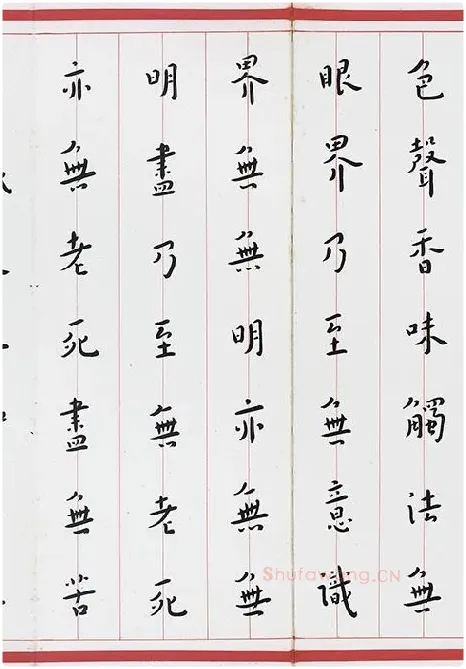 色聲香味觸法無
眼界乃至無意識
界無無明亦無無
明盡乃至無老死
亦無老死盡無苦
Shufawang.CN